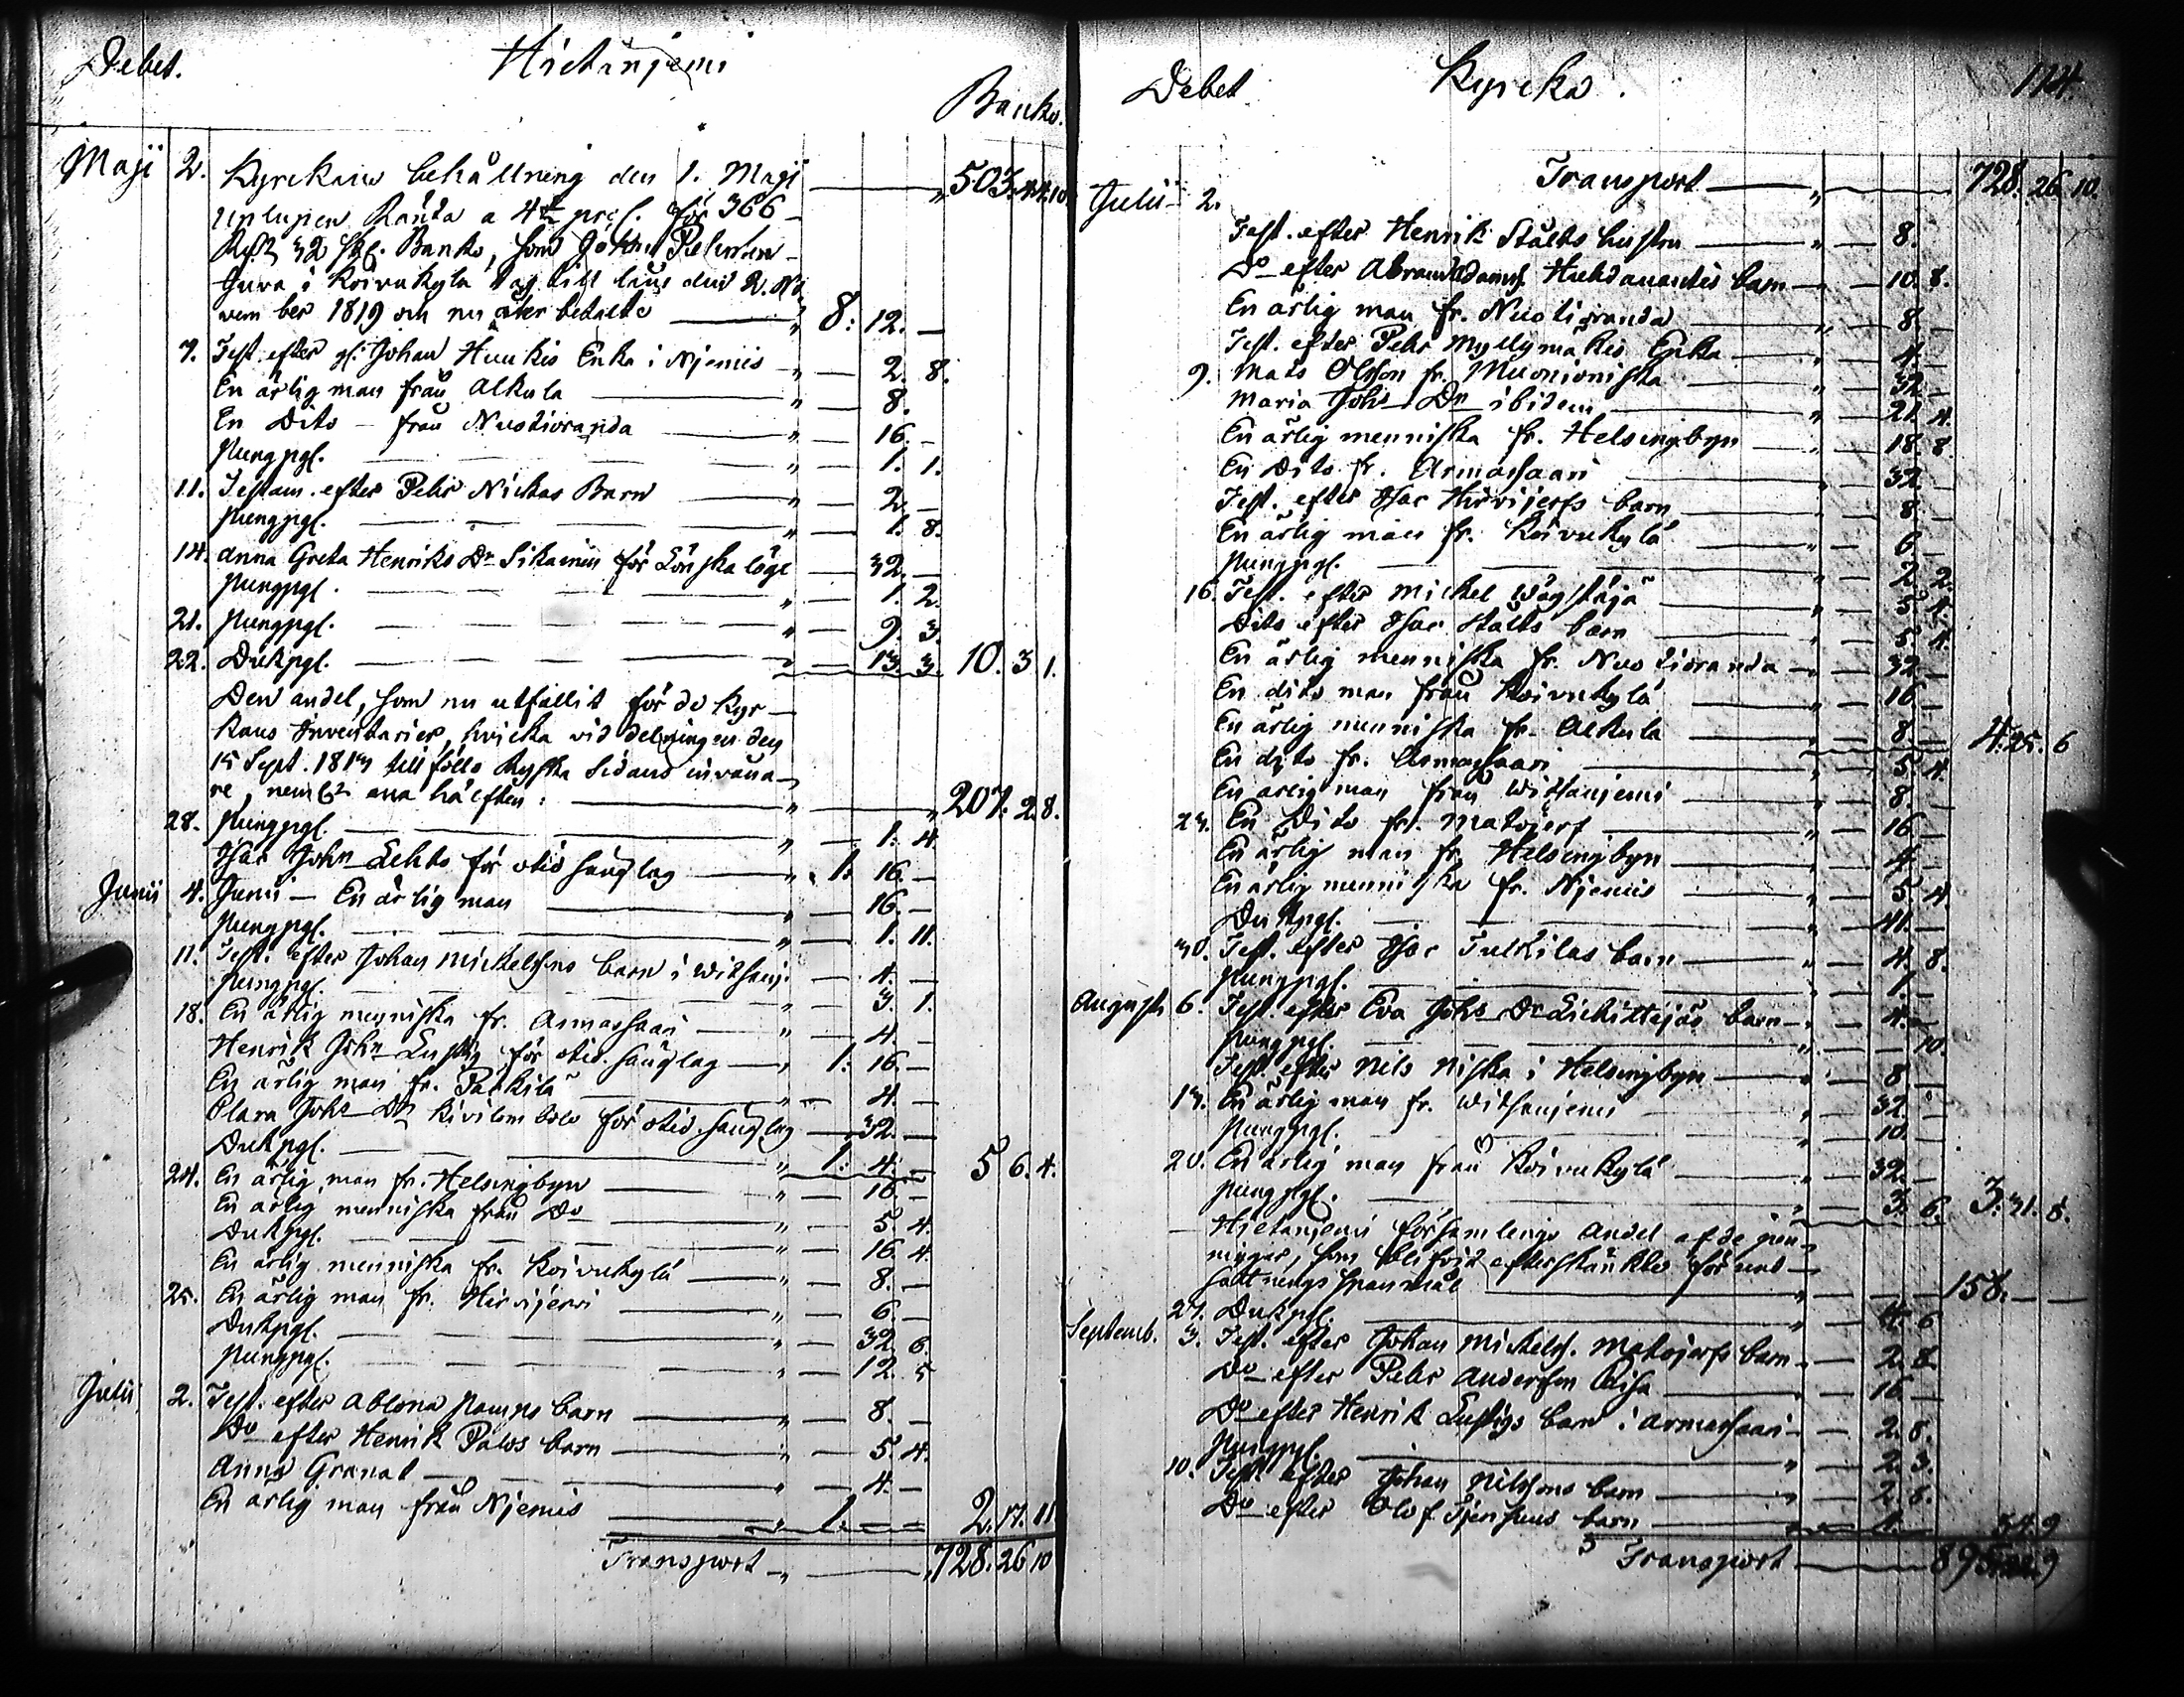 Debet. Hietaniemi
Banko.
Maji 2. Kyrckans behållning den 1. Maji 503. 44. 10.
Uplupen Ränta a 4 prC. för 366
Rdr 32 sk. Banko, som Johan Pelm
Juva i Koivukylä tag till låns den 2. No
vember 1819 och nu åter betalte 8: 12. —
7. Test. efter gl. Johan Huukis Enka i Njemis 2. 8.
En ärlig man från Alkula 8.
En Dito — från Nuotioranda 16. —
Pungpgr. 1. 1.
11. Testam. efter Pehr Nickas Barn 2. —
Pungpgr. 1. 8.
14. Anna Greta Henriks Dr Sikainen för Lönskaläge 32. —
Pungpgr. 1. 2.
21. Pungpgr. 9. 3.
22. Dukpgr. 13. 3. 10. 3 1.
Den andel, som nu utfallit för de Kyr
kans Inventarier, hvilka vid delningen den
15 Sept. 1813 tillföllo Ryska Sidans invåna
re, neml. ena hälften: 207. 2. 8.
28. Pungpgr. 1. 4
Isac Johns Lehto för otid. sänglag 1: 16. —
Junii 4. Junii — En ärlig man 16. —
Pungpgr. 1. 11.
11. Test. efter Johan Mickelssons barn i Witsanj. 4. —
Pungpgr. 3. 1.
18. En ärlig menniska fr. Armassaari 4. —
Henrik Johns Lustig för otid. sänglag 1: 16. —
En ärlig man fr. Päckilä 4. —
Clara Johs Dr Kivilombolo för otid. sänglag 32. —
Dukpgr. 1: 4. — 5 6. 4.
24. En ärlig man fr. Helsingbyn 16. —
En ärlig menniska från Do 5. 4.
Dukpgr. 16. 4.
En ärlig menniska fr. Koivukylä 8. —
25. En ärlig man fr. Hirvijervi 6. —
Dukpgr. 32. 6.
Pungpgr. 12. 5
Julii 2. Test. efter Ablona Pamps barn 8. —
Do efter Henrik Palos barn 5. 4.
Anna Granat 4. —
En ärlig man från Njemis 1. — — 2. 17. 11
Transport 728. 26 10
Debet Kyrcka. 114.
Transport 728. 26 10.
Julii 2.
Test. efter Henrik Stålts hustru 8.
Do efter Abram Adamss. Huhdanantis barn 10. 8.
En ärlig man fr. Nuotioranda 8. —
Test. efter Pehr Myllymäkis Enka 4. —
9. Mats Olsson fr. Muonioniska 32
Maria Johs Dr ibidem 21. 4.
En ärlig menniska fr. Helsingbyn 18. 8
En Dito fr. Armassaari 32
Test. efter Isac Hirvijerfs barn 8 —
En ärlig man fr. Koivukylä 6 —
Pungpgr. 2. 2.
16. Test. efter Mickel Wägstäja 5. 4.
Dito efter Isac Stålts barn 5 4.
En ärlig menniska fr. Nuotioranda 32 —
En dito man från Koivukylä 16 —
En ärlig menniska fr. Alkula 8 — 4. 25. 6
En dito fr. Armassaari 5. 4.
En ärlig man från Witsanjemi 8. —
23. En Dito fr. Matojerf 16 —
En ärlig man fr. Helsingbyn 4. —
En ärlig menniska fr. Njemis 5. 4.
Dukpgr. 41. —
30. Test. efter Isac Tulkilas barn 4. 8.
Pungpgr. 1. —
Augusti 6. Test. efter Eva Johs Dr Lichittäjäs barn 4. —
Pungpgr. — 10.
Test. efter Nils Niska i Helsingbyn 8 —
13. En ärlig man fr. Witsanjemi 32.
Pungpgr. 10. —
20. En ärlig man från Koivukylä 32. —
Pungpgr. 3. 6. 3. 31. 8.
Hietanjemi församlings andel af de pen
ningar, som blifvit efterskänkte för und
sättnings spanmål 158. — —
27. Dukpgr. 4. 6
Septemb. 3. Test. efter Johan Mickelss. Matojerfs barn 2. 8.
Do efter Pehr Andersson 16 —
Do efter Henrik Lustigs barn i Armassaari 2. 8.
Pungpgr. 2. 3.
10. Test. efter Johan Nilssons barn 2. 8.
Do efter Olof barn 4. — 34. 9
Transport 895. 9